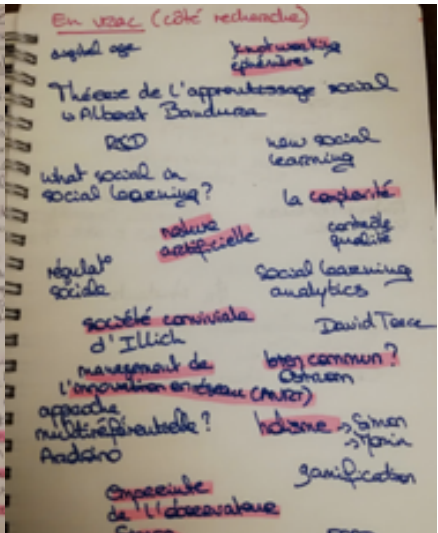 En vrac (côté recherche)
digital age
knotworking
éphémères
Théorie de l'apprentissage social
↳ Albert Bandura
R&D
new social
learning
what social in
social learning?
la complexité
nature
artificielle
contrôle
qualité
régulat°
sociale
Social learning
analytics
société conviviale
d'Illich
David Teece
management de
l'innovation en réseau (ANRT)
bien commun?
Ostrom
approche
multiréférentielle?
Ardoino
holisme → Simon
→ Morin
gamification
empreinte
de l'observateur